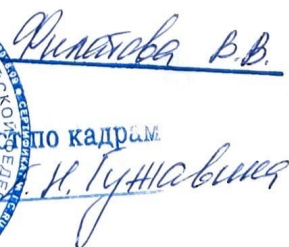 Филатова В.В.
ст по кадрам
Н. Гужавина